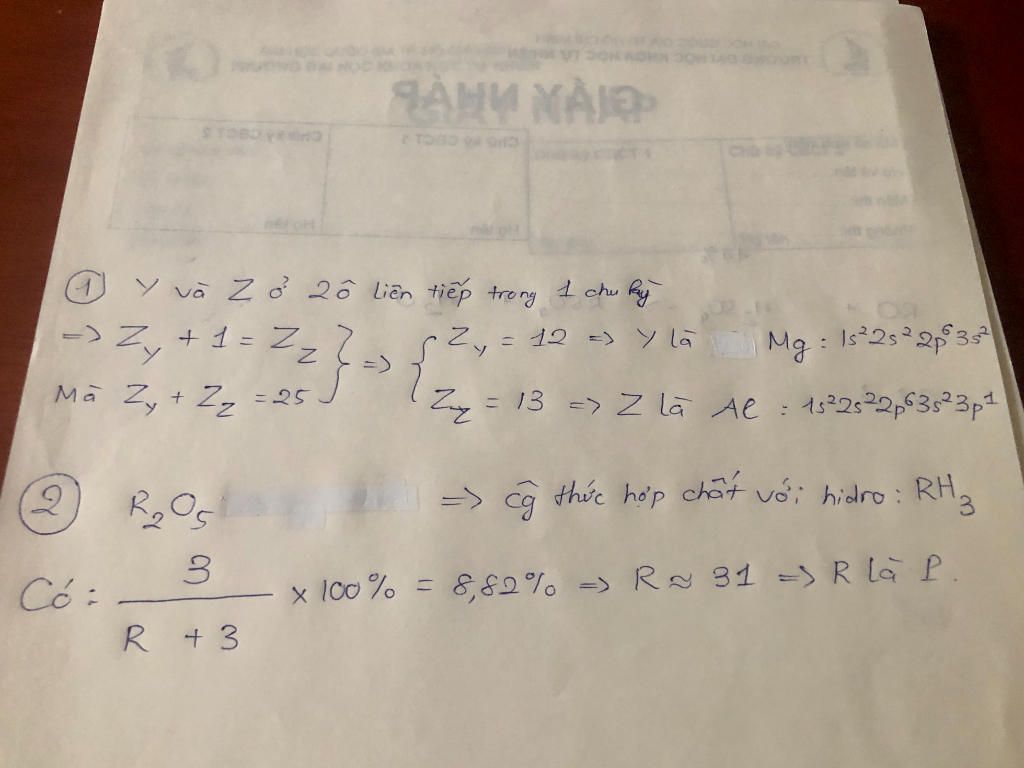 ① Y và Z ở 2 ô liên tiếp trong 1 chu kỳ
=> Z_Y + 1 = Z_Z } => { Z_Y = 12 => Y là Mg : 1s²2s²2p⁶3s²
Mà Z_Y + Z_Z = 25 Z_Z = 13 => Z là Al : 1s²2s²2p⁶3s²3p¹
② R₂O₅ => cg thức hợp chất với hidro : RH₃
Có : 3 / (R + 3) x 100% = 8,82% => R ≈ 31 => R là P.